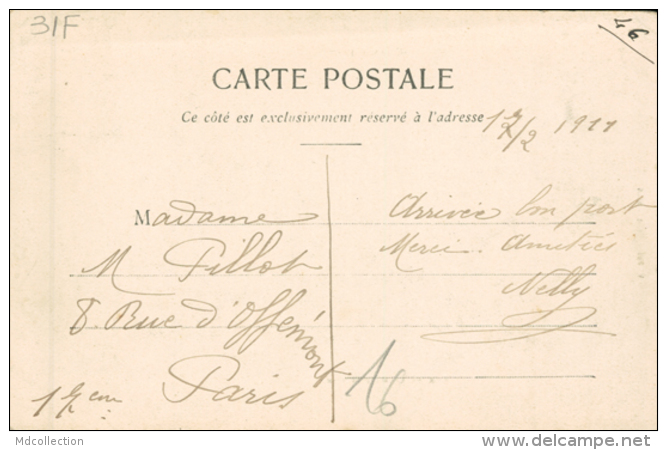 31F
46
CARTE POSTALE
Ce côté est exclusivement réservé à l'adresse
17/2 1911
Madame
M Pillot
8. Rue d'Offémont
Paris
17 em
Arrivée bon port
Merci. Amitiés
Nelly
16
Mdcollection
delcampe.net